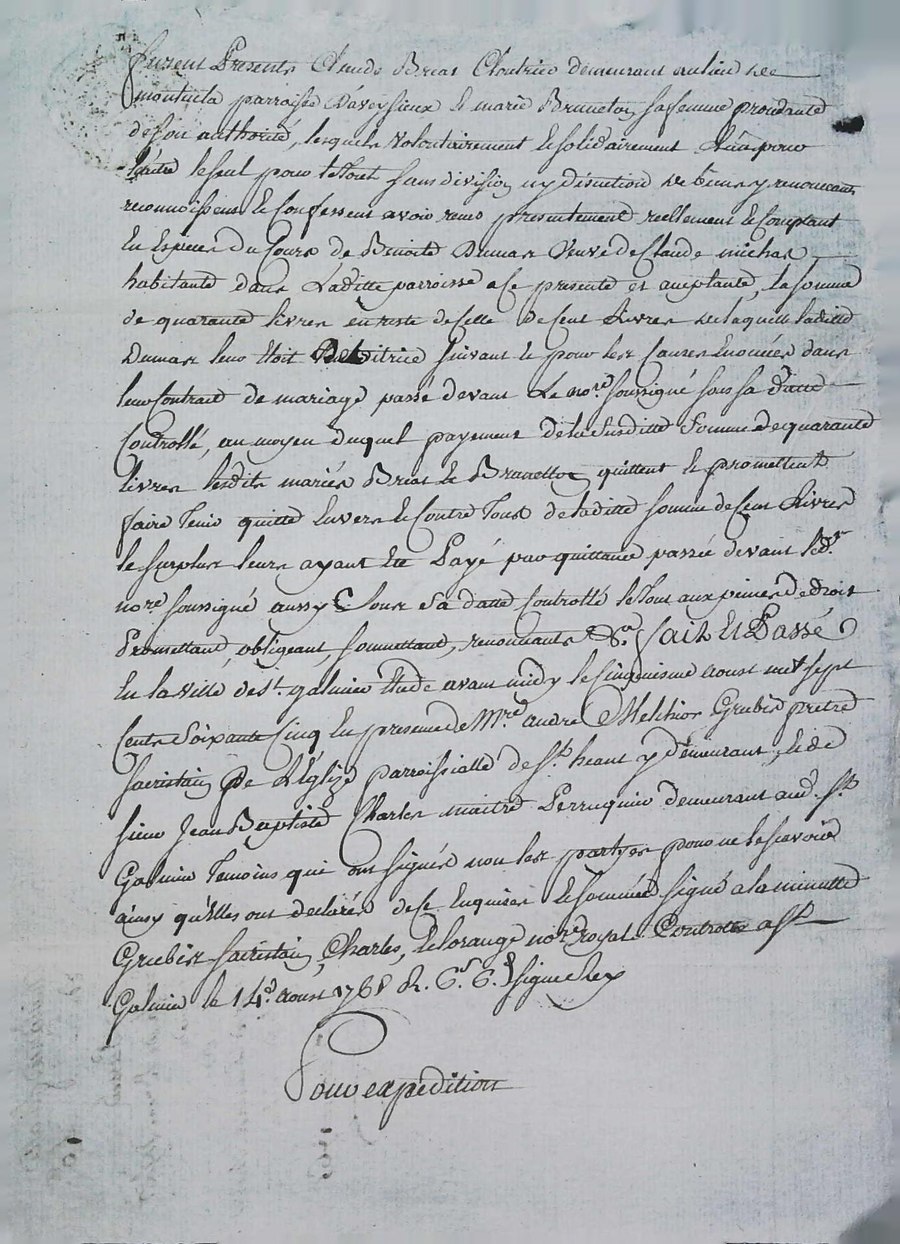 furent Presents Claude Brias Cloutrier demeurant au lieu de
montucla parroisse D'aveysieux et marie Brunetton sa femme procédante
de son authorité, lesquels Volontairement et solidairement L'un pour
L'autre le seul pour le tout sans division ny discution de biens y renonceant
reconnoissent et Confessent avoir receus presentement reellement et Comptant
En Especes du Cours de Benoite Dumas Veuve de Claude michas
habitante dans Laditte parroisse a ce presente et acceptante, la somme
de quarante livres en reste de Celle de Cent Livres de laquelle laditte
Dumas leur étoit Debitrice suivant et pour les Causes Enoncées dans
leur Contrait de mariage passé devant Le nore. soussigné sous sa datte
Controllé, au moyen duquel payement de la susditte Somme de quarante
livres lesdits mariés Brias et Brunetton quittent et promettent
faire tenir quitte Envers et Contre Tous de laditte somme de Cent Livres
le surplus leurs ayant été Payé par quittance passée devant led.
nore. soussigné aussy sous Sa datte Controllé le tout aux peines de droit
Promettant, obligeant, soummettant, renonceants &a. fait Et Passé
En la ville de St. galmier Etude avant midy le Cinquieme aoust mil sept
Cents Soixante Cinq En presence de Mre. andré Melchior Grubis pretre
sacristain de L'Eglize parroissialle de St. heant y demeurant, et de
sieur Jean Baptiste Charles maitre Perruquier demeurant aud. St.
Galmier Temoins qui ont signés non les partyes pour ne le scavoir
ainsy qu'Elles ont declarées de ce Enquises et sommées signé a la minutte
Grubis sacristain, Charles, et lorange nore. royal. Controllé a St.
Galmier le 14e. aoust 1765 R. signé Rey
Pour expédition